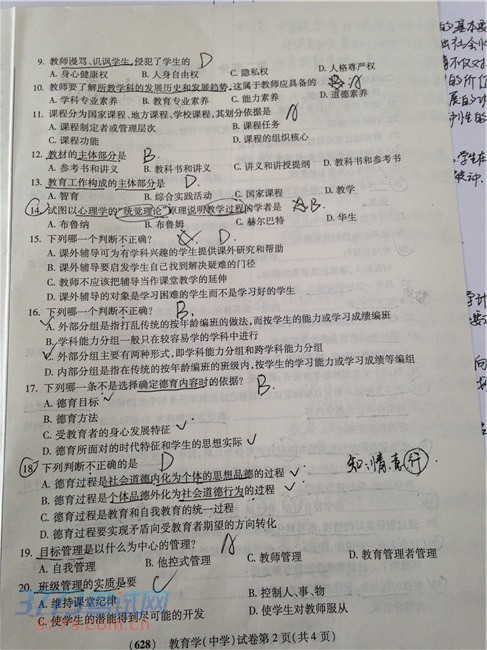 9. 教师谩骂、讥讽学生,侵犯了学生的 D
A. 身心健康权 B. 人身自由权 C. 隐私权 D. 人格尊严权
10. 教师要了解所教学科的发展历史和发展趋势,这属于教师应具备的 A
A. 学科专业素养 B. 教育专业素养 C. 能力素养 D. 道德素养
11. 课程分为国家课程、地方课程、学校课程,其划分依据是 A
A. 课程制定者或管理层次 B. 课程任务
C. 课程功能 D. 课程的组织核心
12. 教材的主体部分是 B.
A. 参考书和讲义 B. 教科书和讲义 C. 讲义和讲授提纲 D. 教科书
13. 教育工作构成的主体部分是 D.
A. 智育 B. 综合实践活动 C. 国家课程 D. 教学
14. 试图以心理学的“统觉理论”原理说明教学过程的学者是 B.
A. 布鲁纳 B. 布鲁姆 C. 赫尔巴特 D. 华生
15. 下列哪一个判断不正确? D.
A. 课外辅导可为有学科兴趣的学生提供课外研究和帮助
B. 课外辅导要启发学生自己找到解决疑难的门径
C. 教师不应该把辅导当作课堂教学的延伸
D. 课外辅导的对象是学习困难的学生而不是学习好的学生
16. 下列哪个判断不正确? B.
A. 外部分组是指打乱传统的按年龄编班的做法,而按学生的能力或学习成绩编班
B. 学科能力分组一般只在较容易学的学科中进行
C. 外部分组主要有两种形式,即学科能力分组和跨学科能力分组
D. 内部分组是指在传统的按年龄编班的班级内,按学生的学习能力或学习成绩等编组
17. 下列哪一条不是选择确定德育内容时的依据? B.
A. 德育目标
B. 德育方法
C. 受教育者的身心发展特征
D. 德育所面对的时代特征和学生的思想实际
18. 下列判断不正确的是 D
知.情.意.行
A. 德育过程是社会道德内化为个体的思想品德的过程
B. 德育过程是个体品德外化为社会道德行为的过程
C. 德育过程是教育和自我教育的统一过程
D. 德育过程要实现矛盾向受教育者期望的方向转化
19. 目标管理是以什么为中心的管理? A
A. 自我管理 B. 他控式管理 C. 教师管理 D. 教育管理者管理
20. 班级管理的实质是要 C
A. 维持课堂纪律 B. 控制人、事、物
C. 使学生的潜能得到尽可能的开发 D. 使学生对教师服从
(628) 教育学(中学)试卷第2页(共4页)